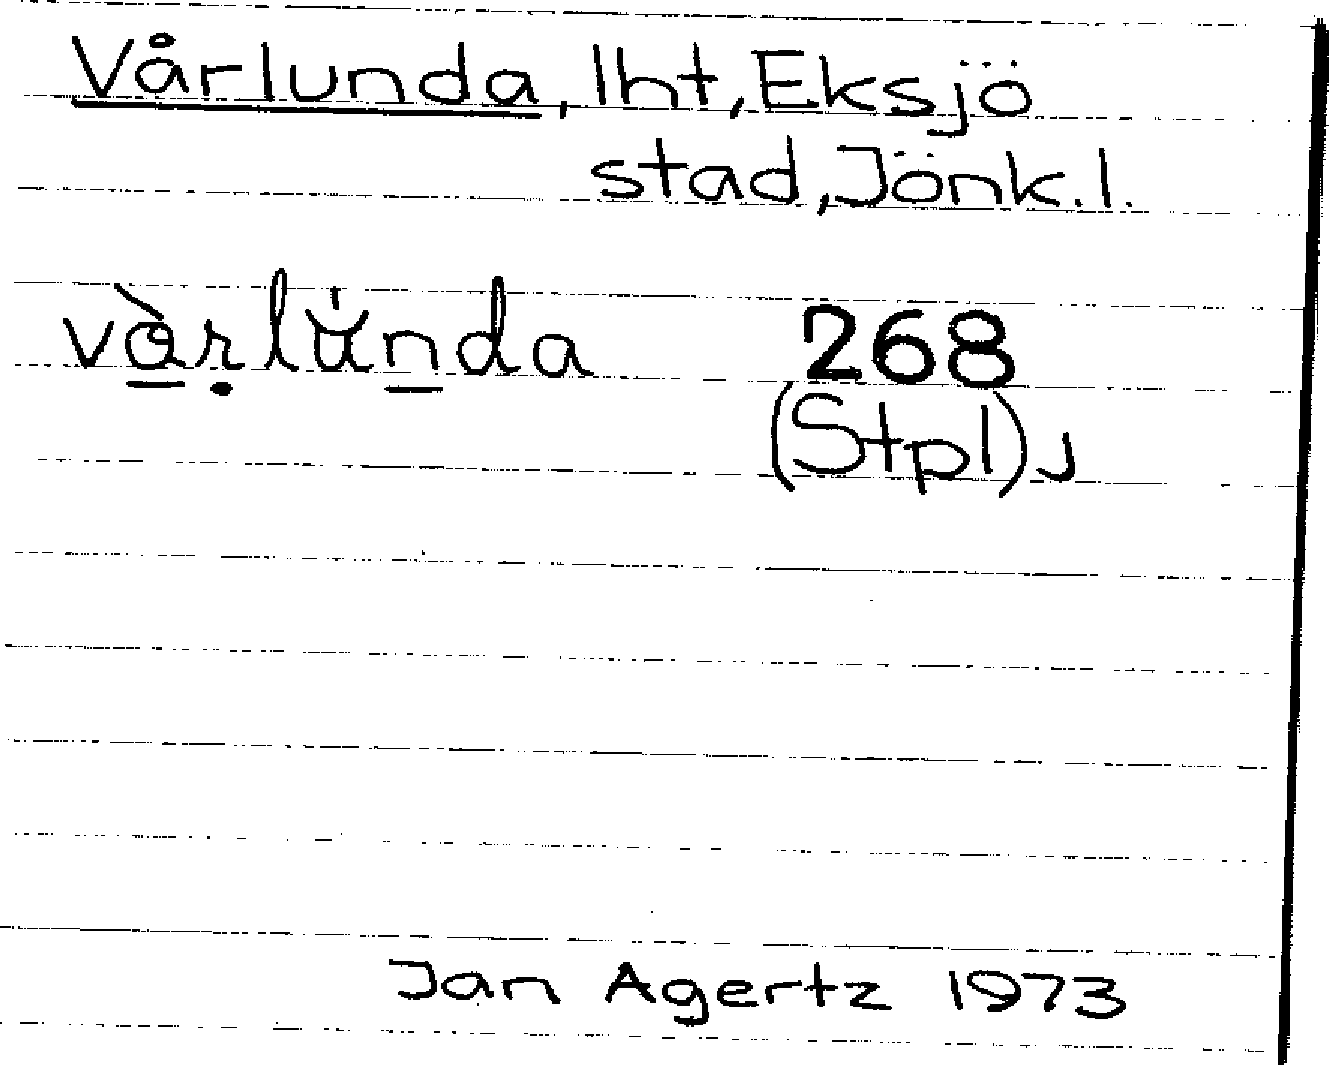 Vårlunda, lht, Eksjö
stad, Jönk.l.
vàrlúnda 268
(Stpl) J
Jan Agertz 1973